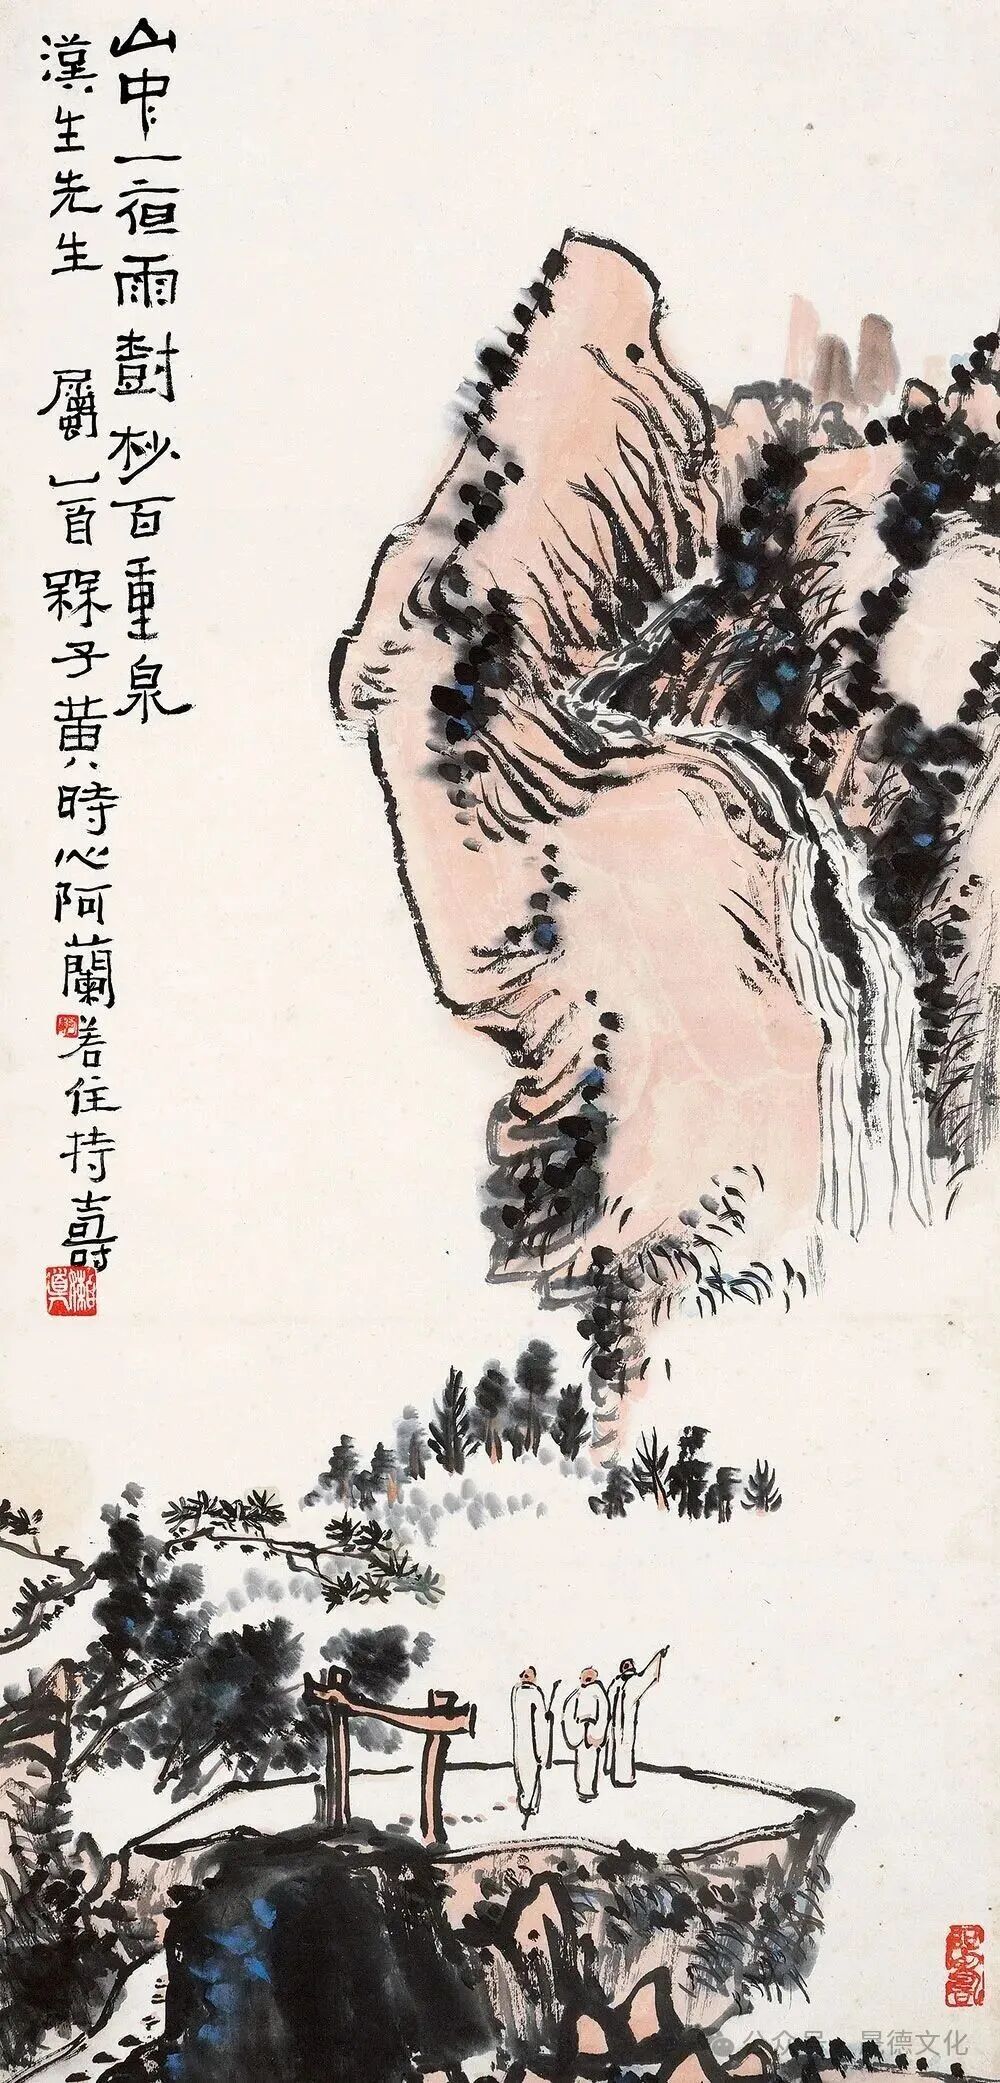 山中一亱雨樹杪百重泉
漢生先生 屬 乙酉槑子黄時心阿蘭若住持壽
阿壽
公众号 · 德文化